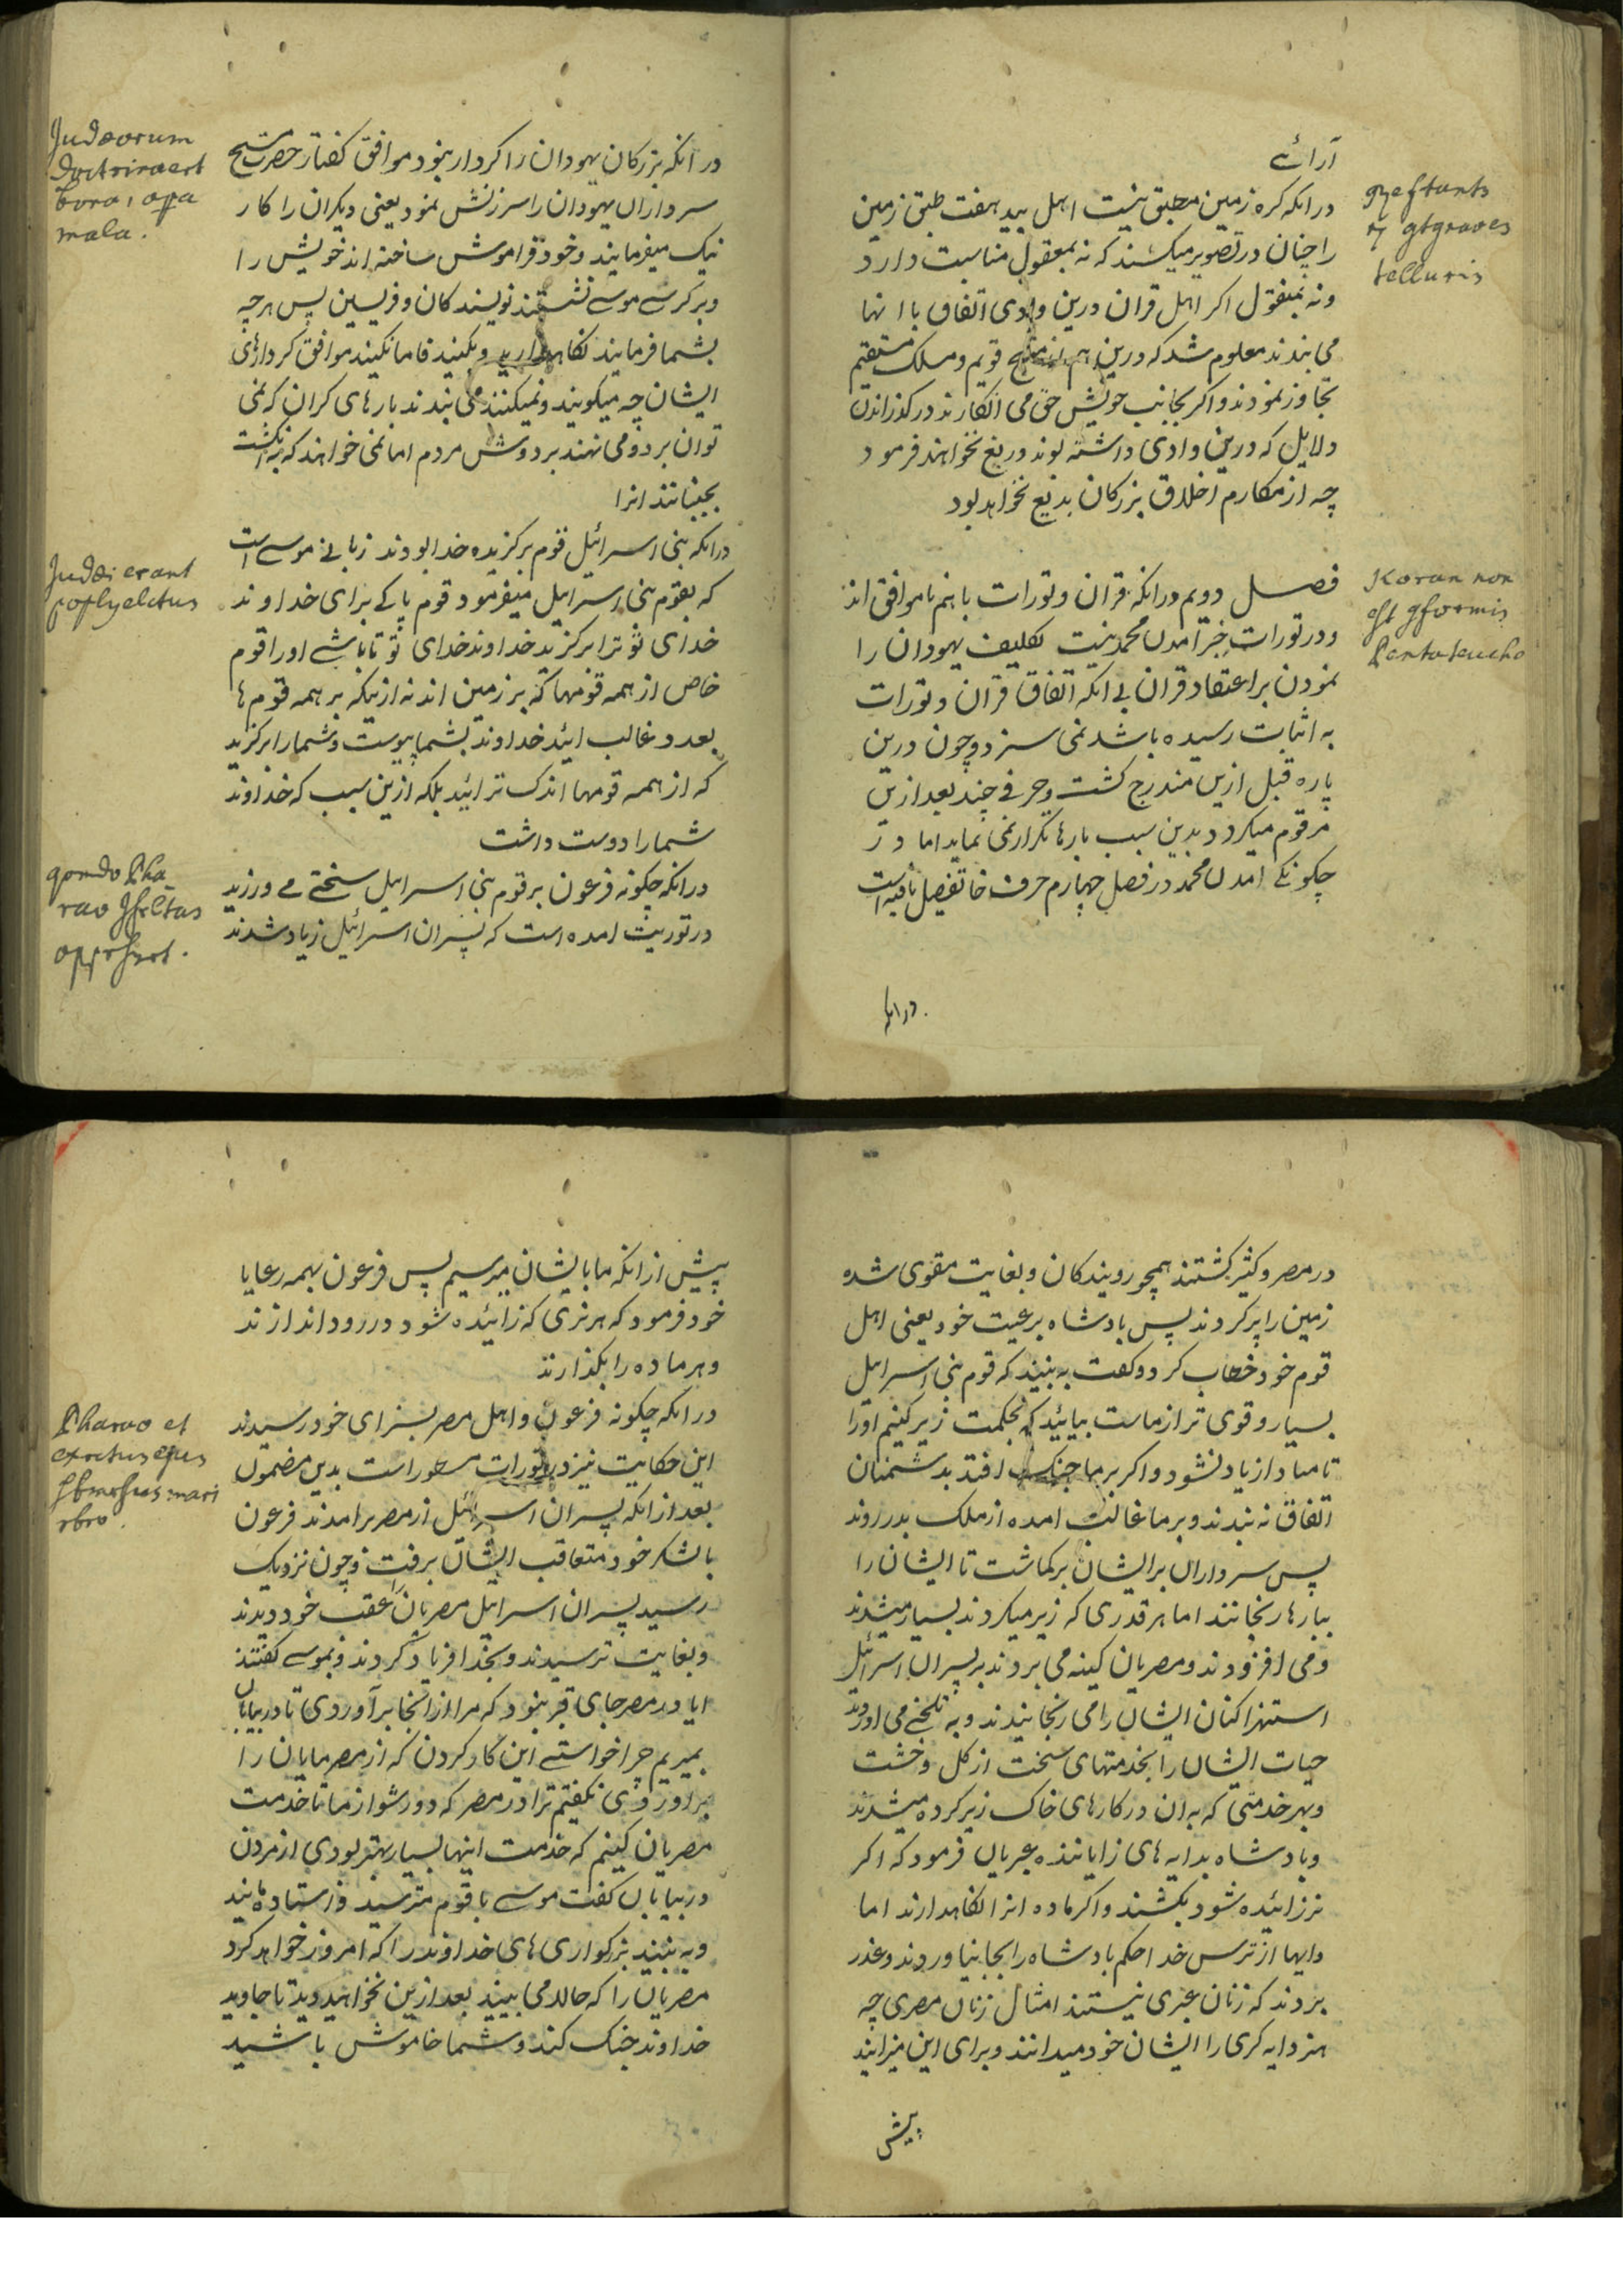 آرائے
درانکه کره زمین مطبق نیست اهل بید هفت طبق زمین
را چنان در تصویر میکشند که نه بمعقول مناسبت دارد
و نه بمنقول اکر اهل قران درین وادی اتفاق با انها
می بندند معلوم شد که درین هم از منهج قویم و مسلک مستقیم
تجاوز نمودند و اکر بجانب خویش حق می انکارند در کذراندن
دلایل که درین وادی داشته بوند دریغ نخواهند فرمود
چه از مکارم اخلاق بزرکان بدیع نخواهد بود
فصل دویم درانکه قران و تورات باهم ناموافق اند
و در تورات خبر آمدن محمد نیست تکلیف یهودان را
نمودن بر اعتقاد قران بی انکه اتفاق قران و تورات
به اثبات رسیده باشد نمی سزد و چون درین
پاره قبل ازین مندرج کشت و حرفی چند بعد ازین
مرقوم میکردد بدین سبب بارها تکرار نمی نماید اما در
چکونکی امدن محمد در فصل چهارم حرف خاتفصیل یافته است
درانکه
qestants
telluris
Koran non
est gformis
Pentateucho
درانکه بزرکان یهودان را کردار نبود موافق کفتار حضرت مسیح
سرداران یهودان را سرزنش نمود یعنی دیکران را کار
نیک میفرمایند و خود فراموش ساخته اند خویش را
و بر کرسی موسی نشستند نویسندکان و فریسین پس هرچه
بشما فرمایند نکاهدارید و بکنید فاما نکنید موافق کردارهای
ایشان چه میکویند و نمیکنند می بندند بارهای کران که نمی
توان برد و می نهند بر دوش مردم اما نمی خواهند که به انکشت
بجنبانند انرا
درانکه بنی اسرائیل قوم برکزیده خدا بودند زبانی موسی است
که بقوم بنی اسرایل میفرمود قوم پاکی برای خداوند
خدای تو ترا برکزید خداوند خدای تو تا باشی او را قوم
خاص از همه قومها که بر زمین اند نه ازینکه بر همه قوم ها
بعدد غالب ائید خداوند بشما پیوست و شما را برکزید
که از همه قومها اندک تر ائید بلکه ازین سبب که خداوند
شما را دوست داشت
درانکه چکونه فرعون بر قوم بنی اسرایل سختی می ورزید
در توریت امده است که پسران اسرائیل زیاد شدند
Judæorum
doctrina est
bona, opa
mala.
Judæi erant
poplus elctus
qomdo Pha
rao Isrltas
oppressrt.
در مصر و کثیر کشتند همچو رویندکان و بغایت مقوی شده
زمین را پر کردند پس بادشاه برعیت خود یعنی اهل
قوم خود خطاب کرد و کفت به بینید که قوم بنی اسرایل
بسیار و قوی تر از ماست بیائید که بحکمت زیر کنیم او را
تا مبادا زیاد نشود و اکر بر ما جنک افتد بدشمنان
اتفاق نه بندند و بر ما غالب امده از ملک بدر روند
پس سرداران بر ایشان برکماشت تا ایشان را
ببارها رنجانند اما هر قدری که زیر میکردند بسیار میشدند
و می افزودند و مصریان کینه می بردند بر پسران اسرائیل
استهزا کنان ایشان را می رنجانیدند و به تلخی می اوردند
حیات ایشان را بخدمتهای سخت از کل و خشت
و بهر خدمتی که به ان در کارهای خاک زیر کرده میشدند
و بادشاه بدایه های زایاننده عبریان فرمود که اکر
نر زائیده شود بکشند و اکر ماده انرا نکاهدارند اما
دایها از ترس خدا حکم بادشاه را بجا نیاوردند و عذر
بردند که زنان عبری نیستند امثال زنان مصری چه
هنر دایه کری را ایشان خود میدانند و برای این میزایند
پیش
پیش از انکه ما بایشان میرسیم پس فرعون بهمه رعایا
خود فرمود که هر نری که زائیده شود در رود اندازند
و هر ماده را بکذارند
درانکه چکونه فرعون و اهل مصر بسزای خود رسیدند
این حکایت نیز در تورات مسطور است بدین مضمون
بعد از انکه پسران اسرائیل از مصر برامدند فرعون
با لشکر خود متعاقب ایشان برفت و چون نزدیک
رسید پسران اسرایل مصریان را عقب خود دیدند
و بغایت ترسیدند و بخدا فریاد کردند و بموسی کفتند
ایا در مصر جای قبر نبود که مرا از انجا برآوردی تا در بیابان
بمیریم چرا خواستی این کار کردن که از مصر مایان را
براوردی نکفتیم ترا در مصر که دور شو از ما تا خدمت
مصریان کنیم که خدمت اینها بسیار بهتر بودی از مردن
در بیابان کفت موسی با قوم مترسید و استاده مانید
و به بینید بزرکواری های خداوند را که امروز خواهد کرد
مصریان را که حالا می بینید بعد ازین نخواهید دید تا جاوید
خداوند جنک کند و شما خاموش باشید
Pharao et
exrctus ejus
sbmrsus mari
rbro.